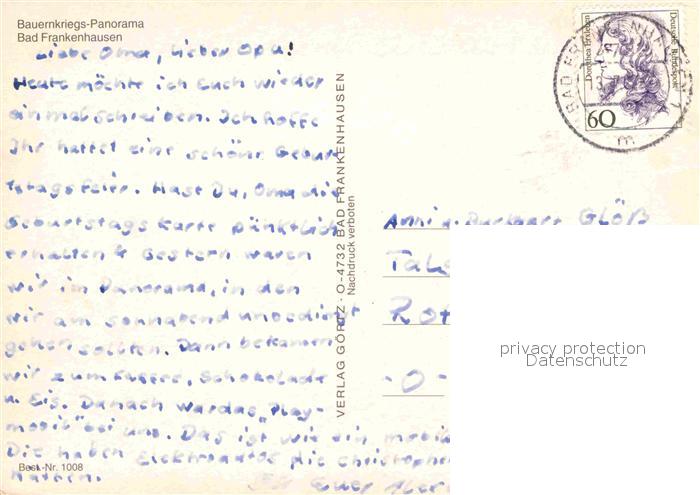 Bauernkriegs-Panorama
Bad Frankenhausen
Liebe Oma, lieber Opa!
Heute möchte ich Euch wieder
einmal schreiben. Ich hoffe
Ihr hattet eine schöne Gebur
tstagsfeier. Hast Du, Oma die
Geburtstagskarte pünktlich
erhalten? Gestern waren
wir im Panorama, in den
wir am Sonnabend unbedingt
gehen sollten. Dann bekamen
wir zum Kaffee, Schokolade
u. Eis. Danach war das „Play-
mobil" bei uns. Das ist wie ein
Die haben Elektroautos die Christopher
hatten.
Euer
Best.-Nr. 1008
VERLAG GÖRTZ · O-4732 BAD FRANKENHAUSEN
Nachdruck verboten
Deutsche Bundespost
Dorothea Erxleben
60
BAD FRANKENHAUSEN
1
m
Burkhart Glöß
privacy protection
Datenschutz
- O -